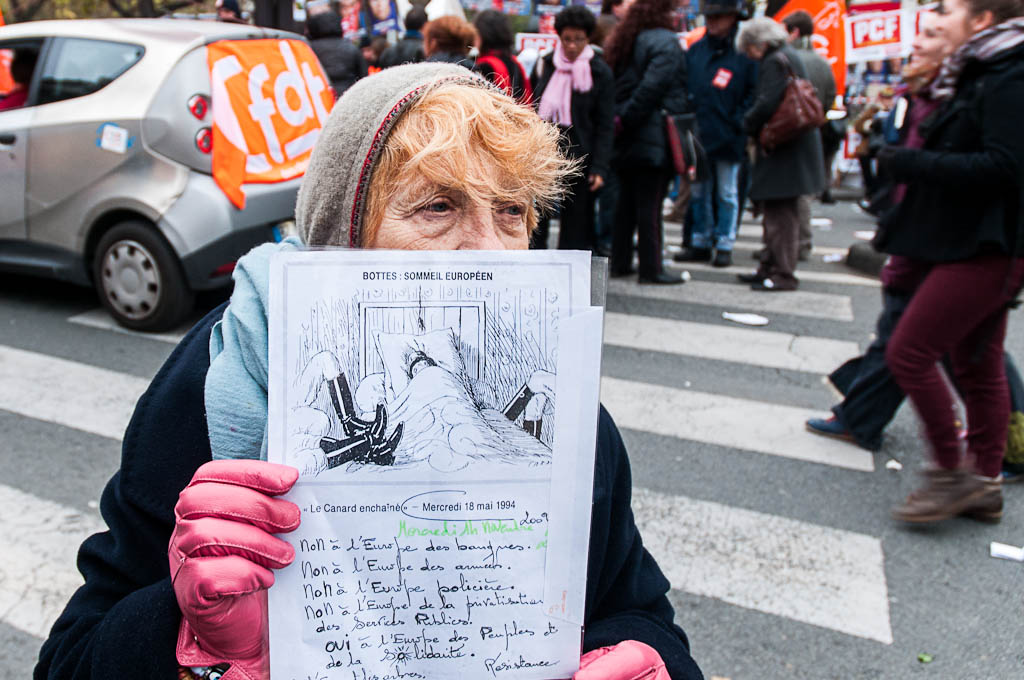 cfdt
PCF
BOTTES : SOMMEIL EUROPÉEN
« Le Canard enchaîné » – Mercredi 18 mai 1994
2009
Mercredi 14 Novembre
Non à l'Europe des banques.
Non à l'Europe des armées.
Non à l'Europe policière.
Non à l'Europe de la privatisation
des Services Publics.
OUI à l'Europe des Peuples et
de la Solidarité.
Résistance